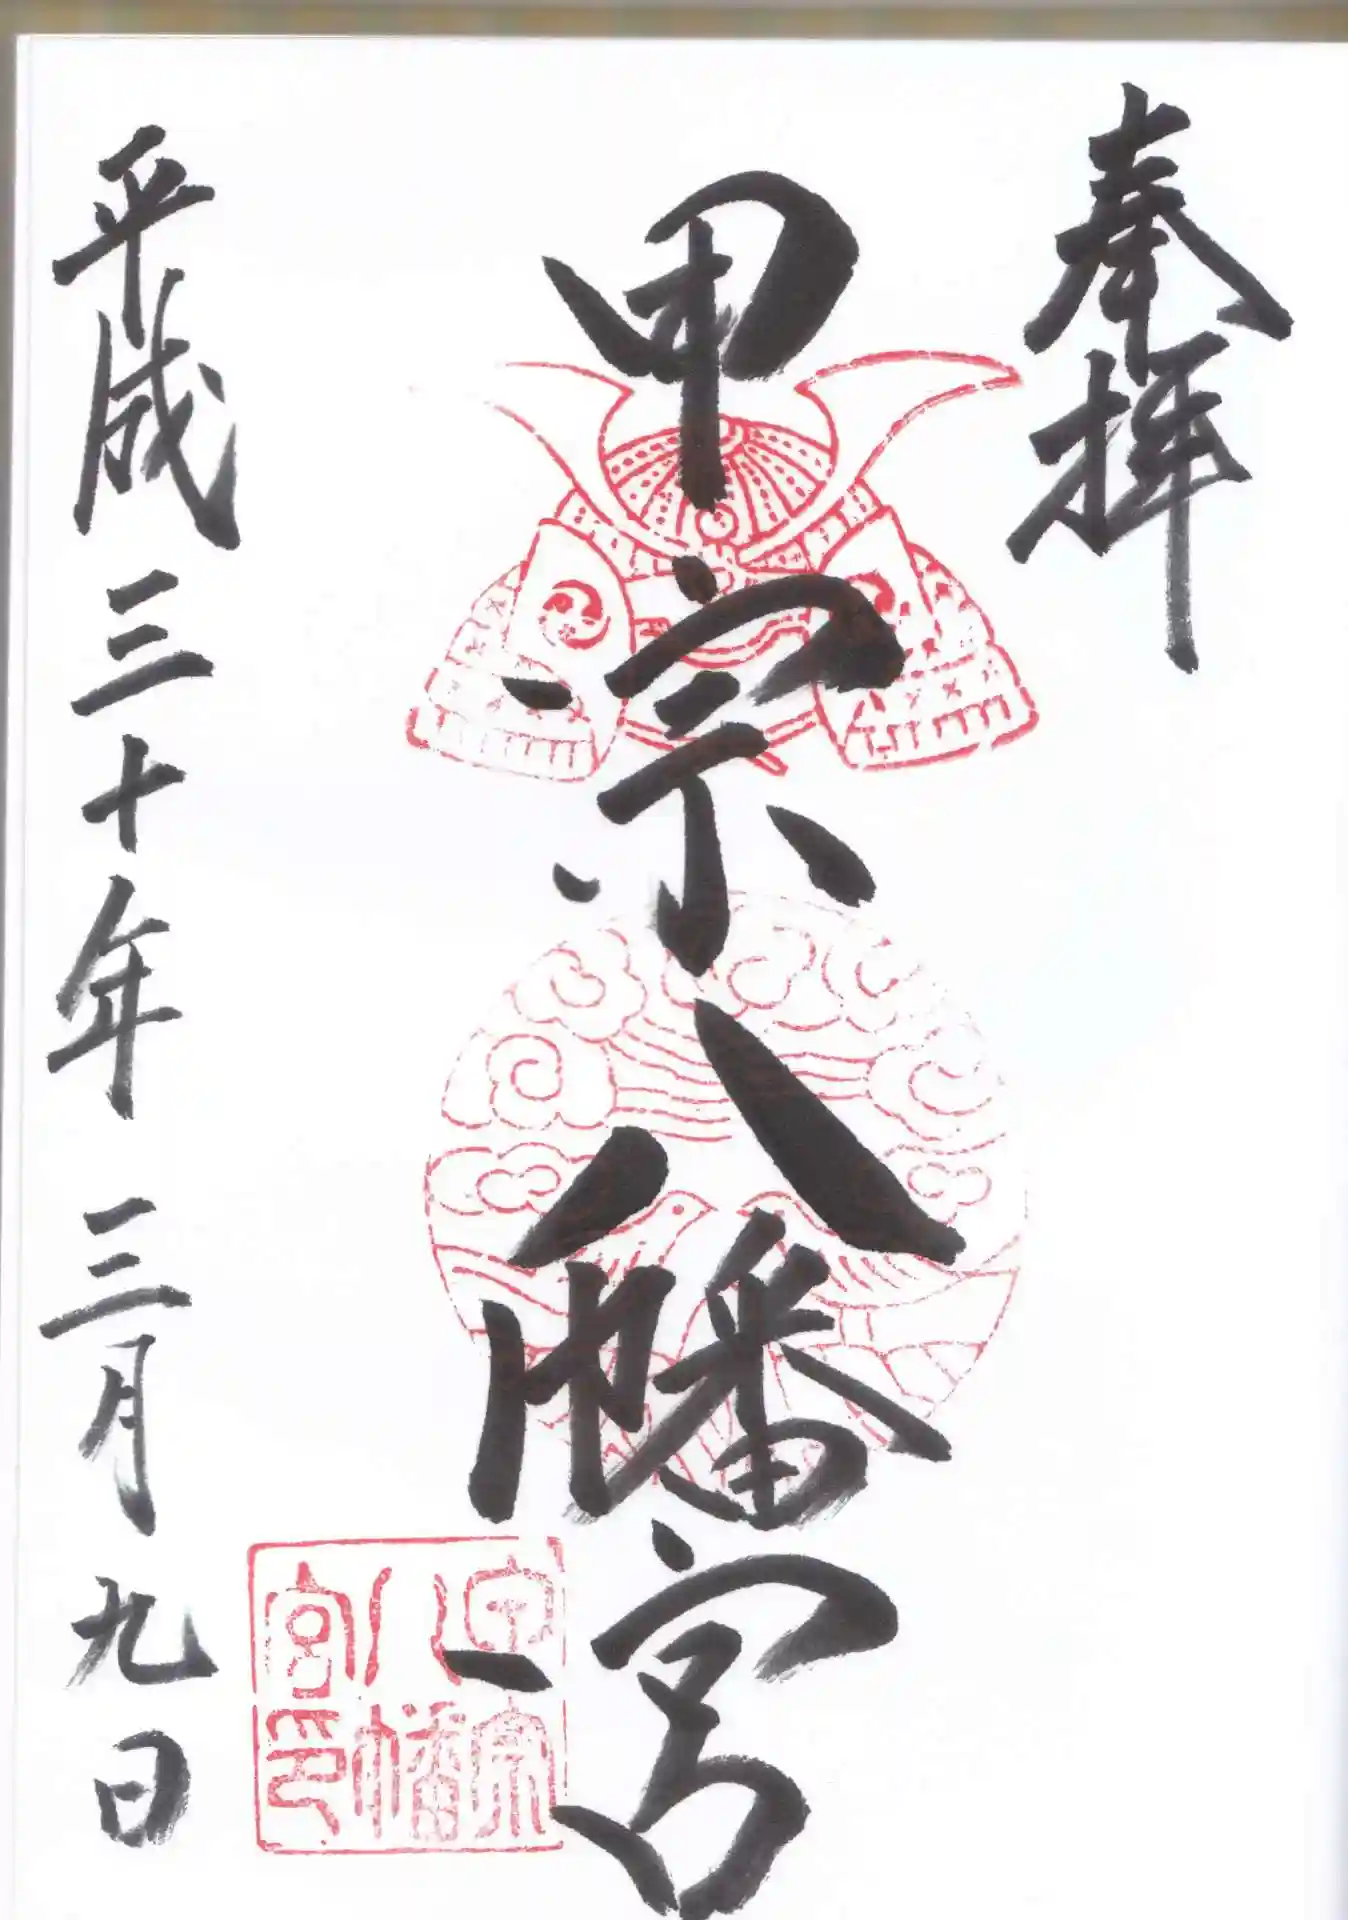 奉拝
甲宗八幡宮
甲宗八幡宮印
平成三十年 三月九日